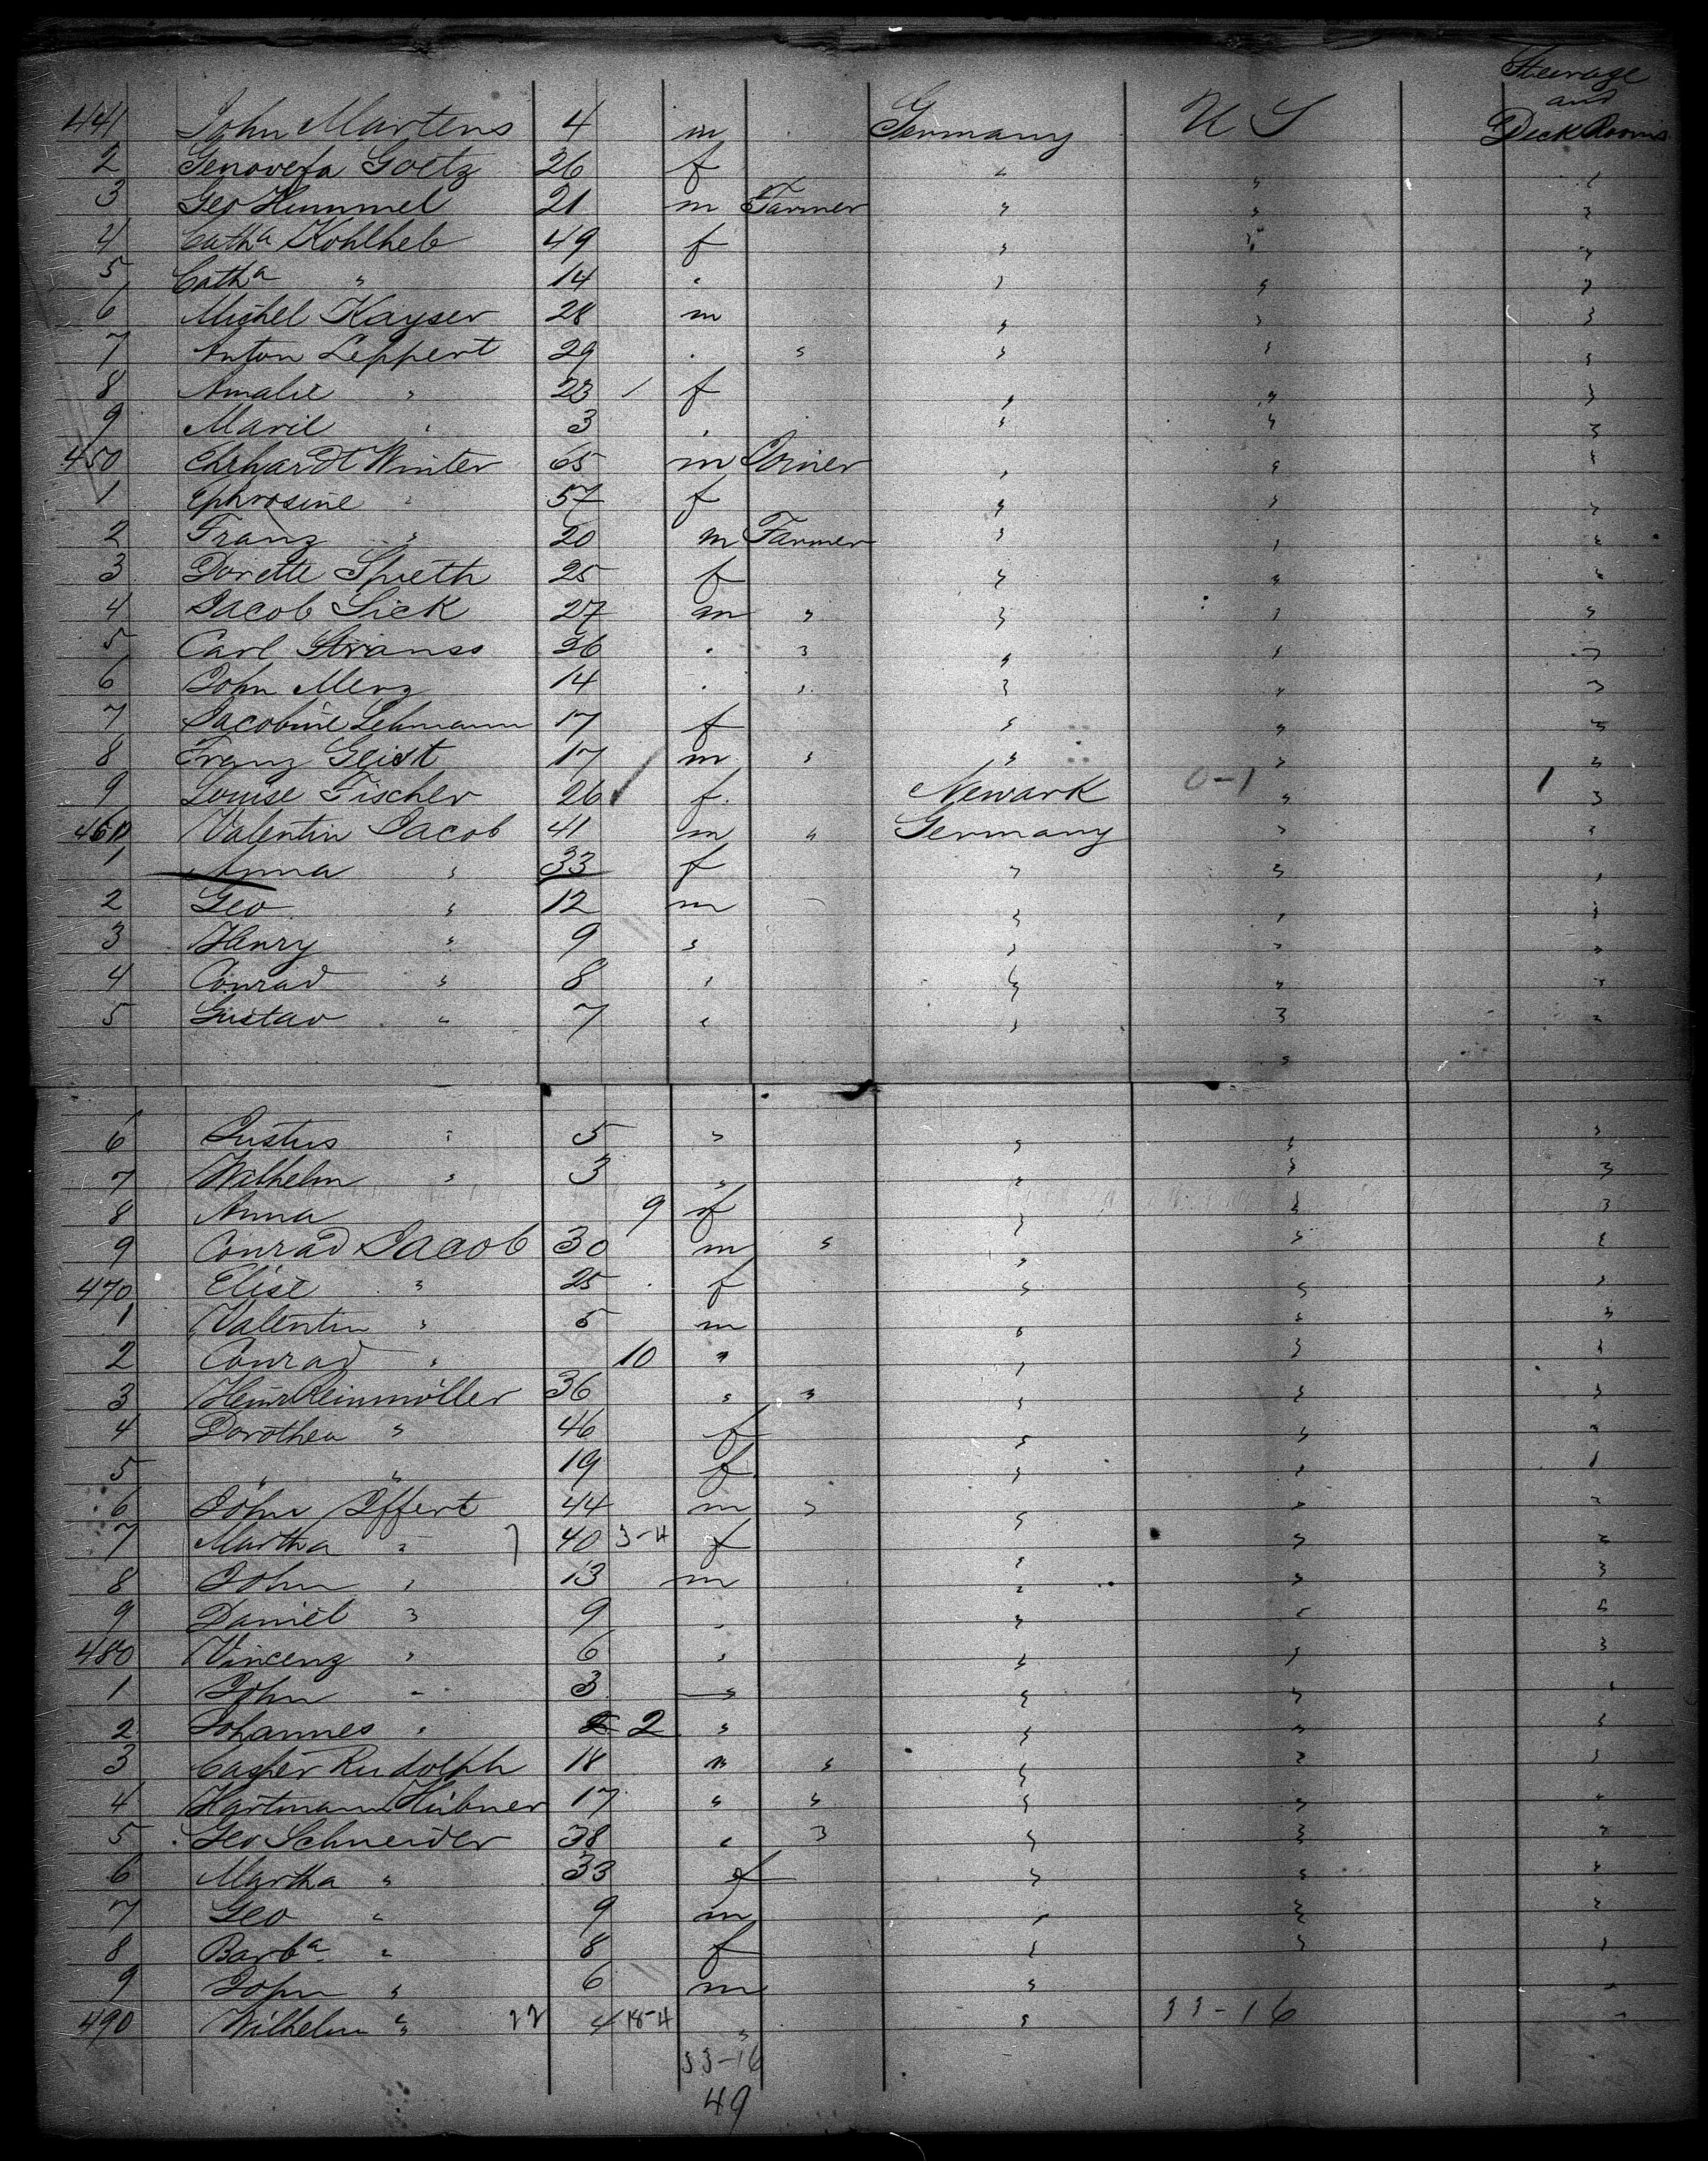 Steerage
and
Deck Rooms
441 John Martens 4 m Germany U S
2 Genovefa Goetz 26 f " " "
3 Geo Hummel 21 m Farmer " " "
4 Cath^a Kohlheb 49 f " " "
5 Cath^a " 14 " " " "
6 Michel Kayser 28 m " " "
7 Anton Leppert 29 " " " " "
8 Amalie " 23 / f " " "
9 Marie " 3 " " " "
450 Ehrhardt Winter 65 m Joiner " " "
1 Ephrosine " 57 f " " "
2 Franz " 20 m Farmer " " "
3 Dorette Spieth 25 f " " "
4 Jacob Sick 27 m " " " "
5 Carl Strauss 26 " " " " "
6 John Merz 14 " " " " "
7 Jacobine Lehmann 17 f " " "
8 Franz Geist 17 m " " " "
9 Louise Fischer 26 ✓ f. Newark 0-1 " 1 "
460 Valentin Jacob 41 m " Germany " "
1 Anna " 33 f " " "
2 Geo " 12 m " " "
3 Henry " 9 " " " "
4 Conrad " 8 " " " "
5 Gustav " 7 " " " "
6 Justus " 5 " " " "
7 Wilhelm " 3 " " " "
8 Anna 9 f " " "
9 Conrad Jacob 30 m " " " "
470 Elise " 25 f " " "
1 Valentin " 5 m " " "
2 Conrad " 10 " " " "
3 Heinr Reinmöller 36 " " " " "
4 Dorothea " 46 f " " "
5 " " 19 f " " "
6 John Iffert 44 m " " " "
7 Martha " 7 40 3-4 f " " "
8 John " 13 m " " "
9 Daniel " 9 " " " "
480 Vincenz " 6 " " " "
1 John " 3 " " " "
2 Johannes " 2 2 " " " "
3 Casper Rudolph 18 m " " " "
4 Hartmann Hübner 17 " " " " "
5 Geo Schneider 38 " " " " "
6 Martha " 33 f " " "
7 Geo " 9 m " " "
8 Barb^a " 8 f " " "
9 John " 6 m " " "
490 Wilhelm " 22 4 18-4 " " 33-16 "
33-16
49